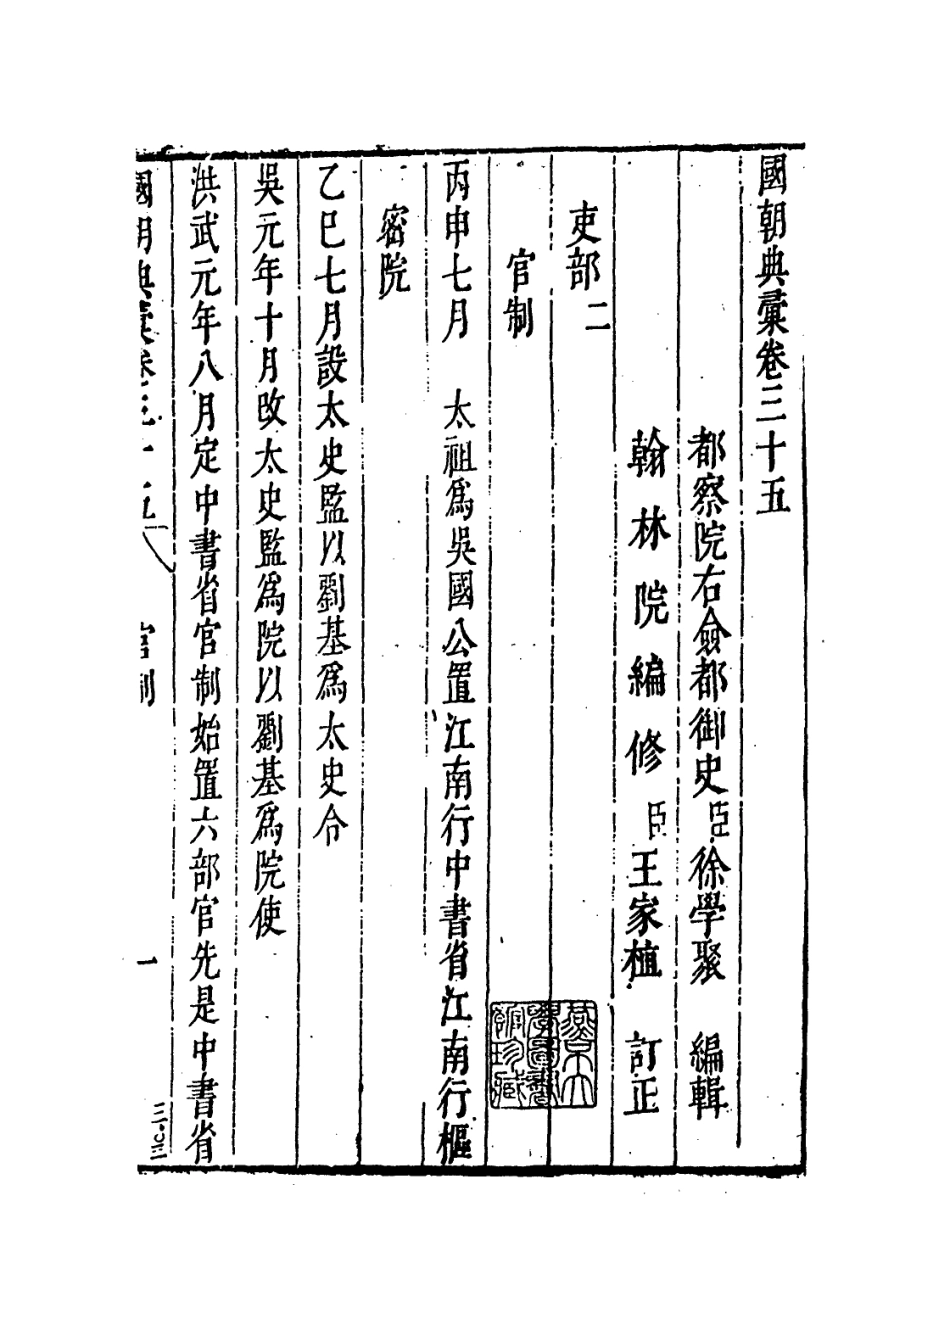 國朝典彙卷三十五
都察院右僉都御史臣徐學聚 編輯
翰林院編修臣王家植 訂正
吏部二
官制
丙申七月 太祖爲吳國公置江南行中書省江南行樞
密院
乙巳七月設太史監以劉基爲太史令
吳元年十月改太史監爲院以劉基爲院使
洪武元年八月定中書省官制始置六部官先是中書省
國朝典彙卷三十五 官制 一
燕京大
學圖書
館珍藏